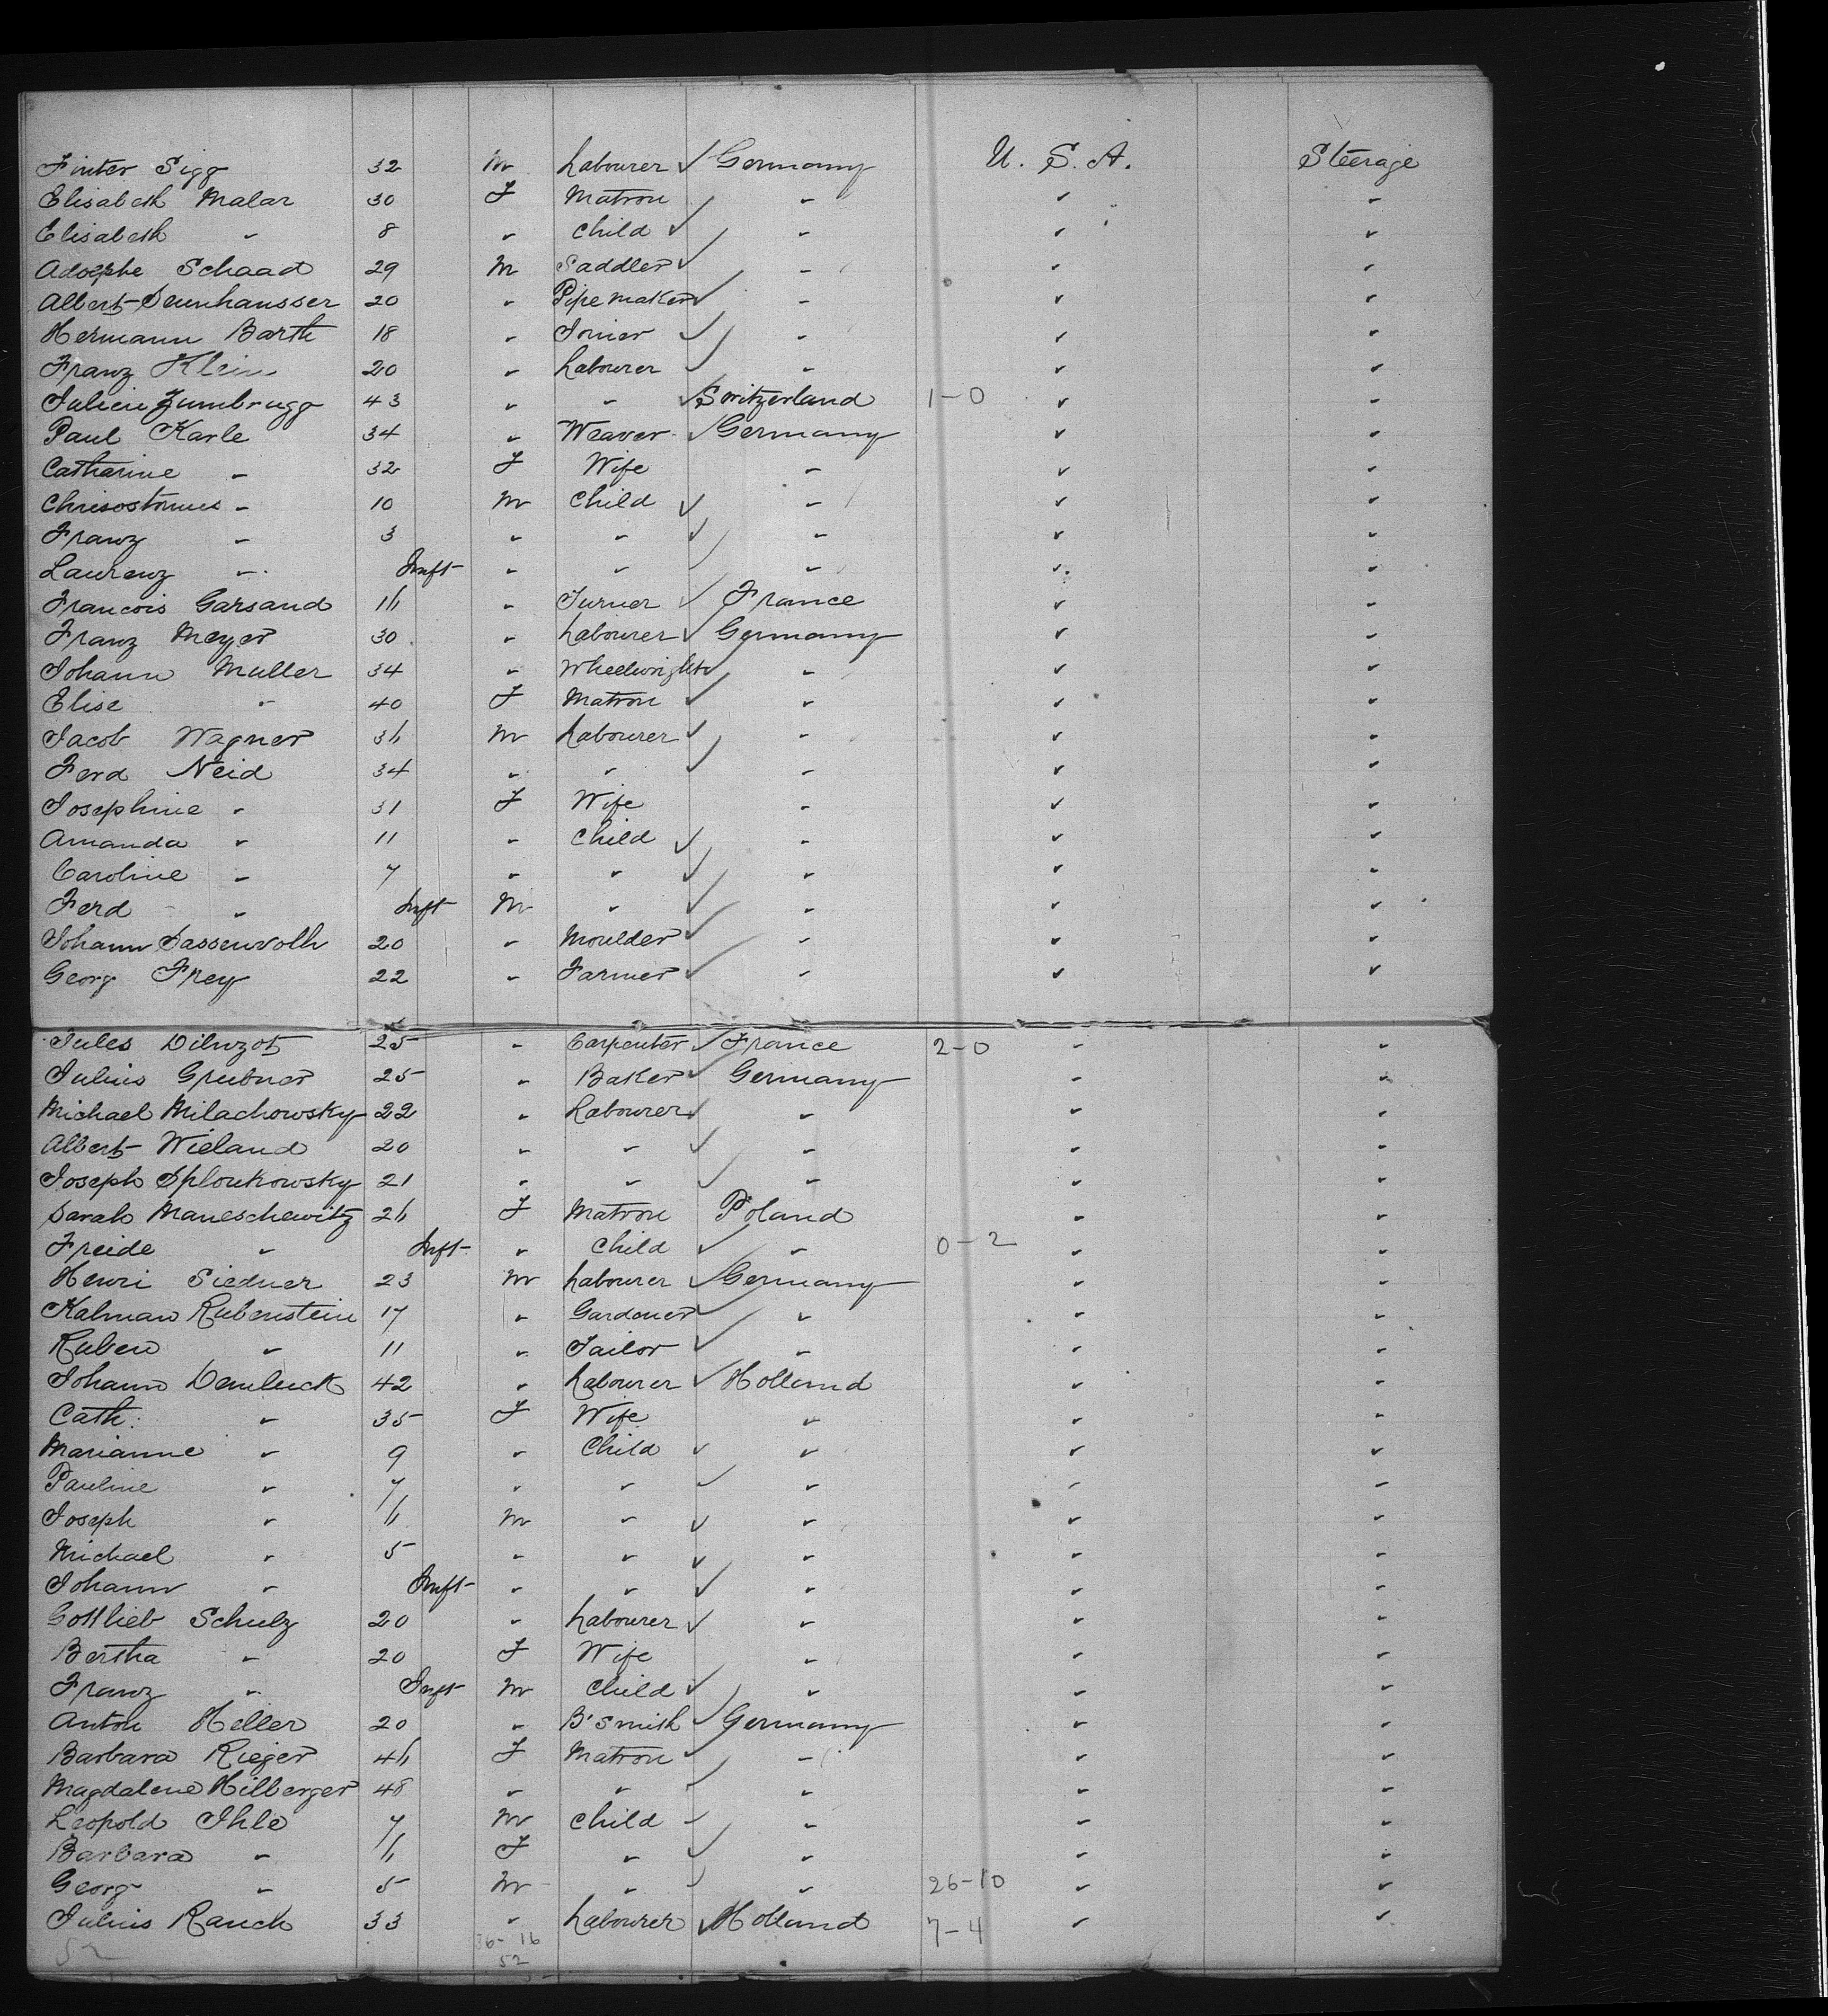 Finter Sigg 32 M Labourer ✓ Germany U. S. A. Steerage
Elisabeth Malar 30 F Matron " " "
Elisabeth " 8 " Child ✓ " " "
Adolphe Schaad 29 M Saddler ✓ " " "
Albert 20 " Pipe maker ✓ " " "
Hermann Barth 18 " Joiner ✓ " " "
Franz Klein 20 " Labourer ✓ " " "
Julien Zumbrugg 43 " " ✓ Switzerland 1-0 " "
Paul Karle 34 " Weaver ✓ Germany " "
Catharine " 32 F Wife " " "
Chrisostomus " 10 M Child ✓ " " "
Franz " 3 " " ✓ " " "
Laurenz " Inft " " ✓ " " "
Francois Garsaud 16 " Turner ✓ France " "
Franz Meyer 30 " Labourer ✓ Germany " "
Johann Muller 34 " Wheelwright ✓ " " "
Elise " 40 F Matron ✓ " " "
Jacob Wagner 36 M Labourer ✓ " " "
Ferd Neid 34 " " ✓ " " "
Josephine " 31 F Wife " " "
Amanda " 11 " Child ✓ " " "
Caroline " 7 " " ✓ " " "
Ferd " Inft M " ✓ " " "
Johann Sassenroth 20 " Moulder ✓ " " "
Georg Frey 22 " Farmer ✓ " " "
Jules 25 " Carpenter ✓ France 2-0 " "
Julius Grubner 25 " Baker ✓ Germany " "
Michael Milachowsky 22 " Labourer ✓ " " "
Albert Wieland 20 " " ✓ " " "
Joseph Sploukowsky 21 " " ✓ " " "
Sarah Maneschewitz 26 F Matron Poland " "
Freide " Inft " Child ✓ " 0-2 " "
Henri Siedner 23 M Labourer ✓ Germany " "
Kalman Rubenstein 17 " Gardener ✓ " " "
Ruben " 11 " Tailor ✓ " " "
Johann Demluck 42 " Labourer ✓ Holland " "
Cath: " 35 F Wife " " "
Marianne " 9 " Child ✓ " " "
Pauline " 7 " " ✓ " " "
Joseph " 6 M " ✓ " " "
Michael " 5 " " ✓ " " "
Johann " Inft " " ✓ " " "
Gottlieb Schulz 20 " Labourer ✓ " " "
Bertha " 20 F Wife " " "
Franz " Inft M Child ✓ " " "
Anton Heller 20 " B'smith ✓ Germany " "
Barbara Rieger 46 F Matron ✓ " " "
Magdalene Hilberger 48 " " ✓ " " "
Leopold Ihle 7 M Child ✓ " " "
Barbara " 6 F " ✓ " " "
Georg " 5 M " ✓ " 26-10 " "
Julius Rauch 33 " Labourer ✓ Holland 7-4 " "
52 36-16
52